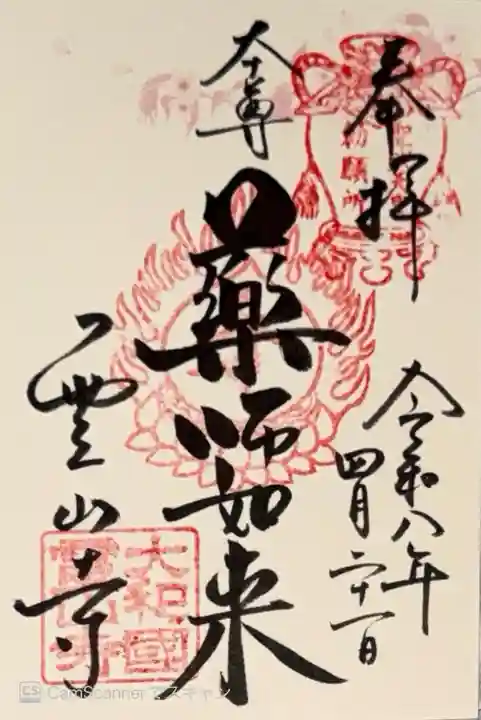 奉拝
本尊
薬師如来
霊山寺
令和八年
四月二十一日
勅願所
大和國
霊山寺
CS CamScanner でスキャン